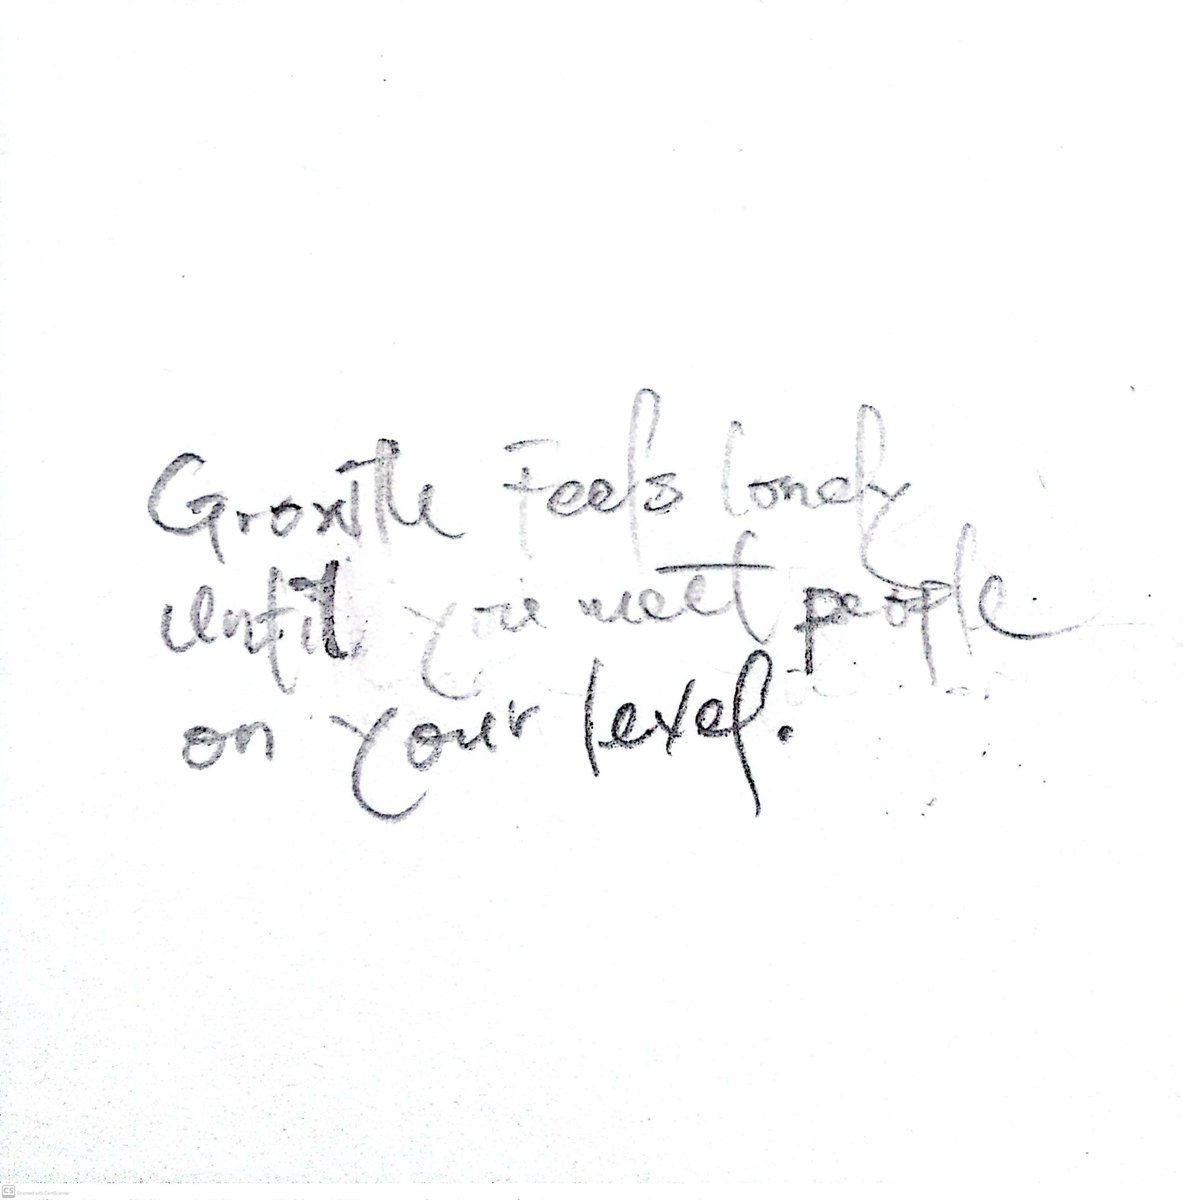 Growth Feels lonely
until you meet people
on your level.
CS Scanned with CamScanner